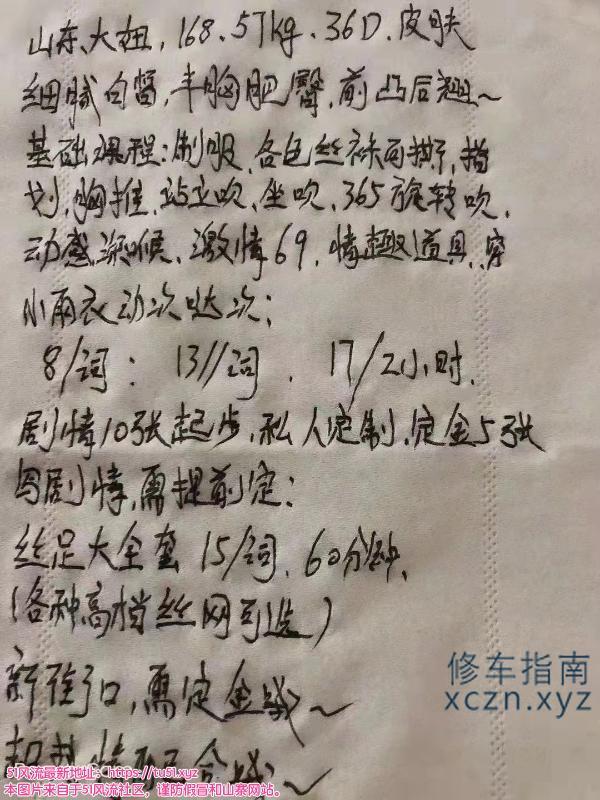 山东、大妞，168.57kg.36D.皮肤
细腻白皙，丰胸肥臀，前凸后翘～
基础课程：制服.各色丝袜可撕，指
划，胸推，站立吹、坐吹、365旋转吹，
动感深喉、激情69，情趣道具，穿
小雨衣动次哒次：
8/词：13//词．17/2小时．
剧情10张起步，私人定制，定金5张
写剧情，需提前定：
丝足大全套 15/词，60分钟，
（各种高档丝网可选）
新街口，需定金哦～
修车指南
xczn.xyz
51风流最新地址：https://tu51.xyz
本图片来自于51风流社区，谨防假冒和山寨网站。